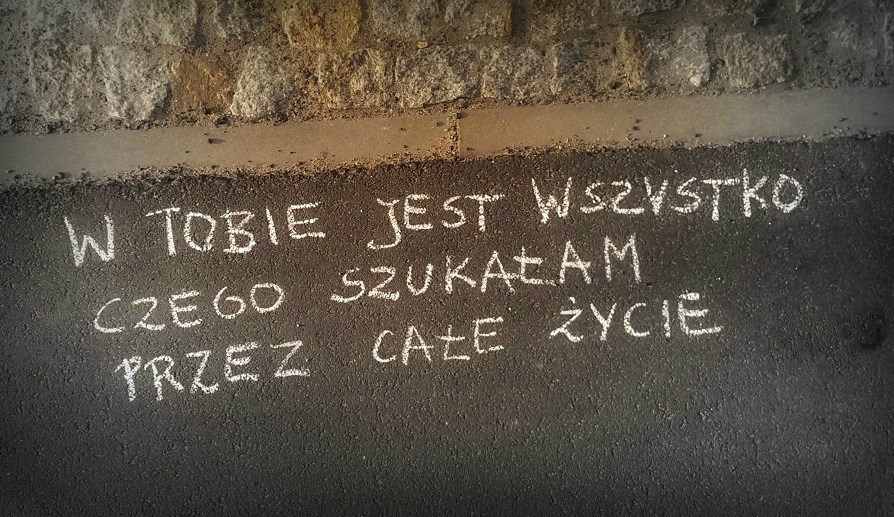 W TOBIE JEST WSZYSTKO
CZEGO SZUKAŁAM
PRZEZ CAŁE ŻYCIE